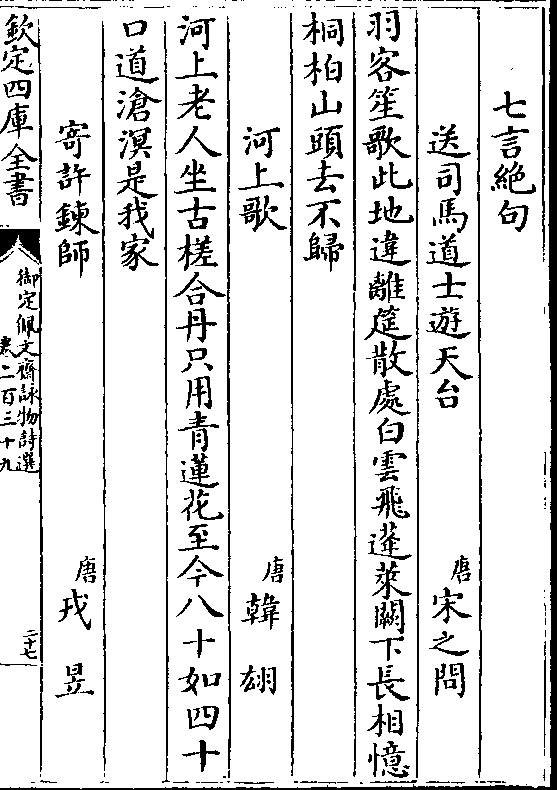 七言絶句
送司馬道士遊天台
唐宋之問
羽客笙歌此地違離筵散處白雲飛蓬萊闕下長相憶
桐柏山頭去不歸
河上歌
唐韓翃
河上老人坐古槎合丹只用青蓮花至今八十如四十
口道滄溟是我家
寄許鍊師
唐戎昱
欽定四庫全書
御定佩文齋詠物詩選
卷二百三十九
二十七